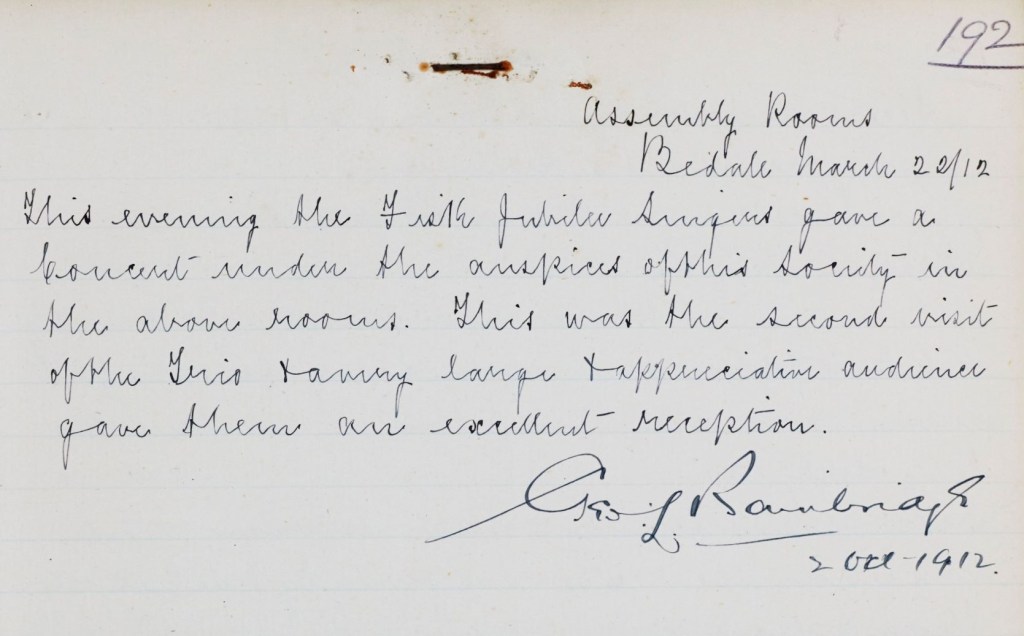 192
Assembly Rooms
Bedale March 22/12
This evening the Fisk Jubilee Singers gave a
Concert under the auspices of this Society in
the above rooms. This was the second visit
of the Trio & a very large & appreciative audience
gave them an excellent reception.
Geo L Bainbridge
2 Oct - 1912.